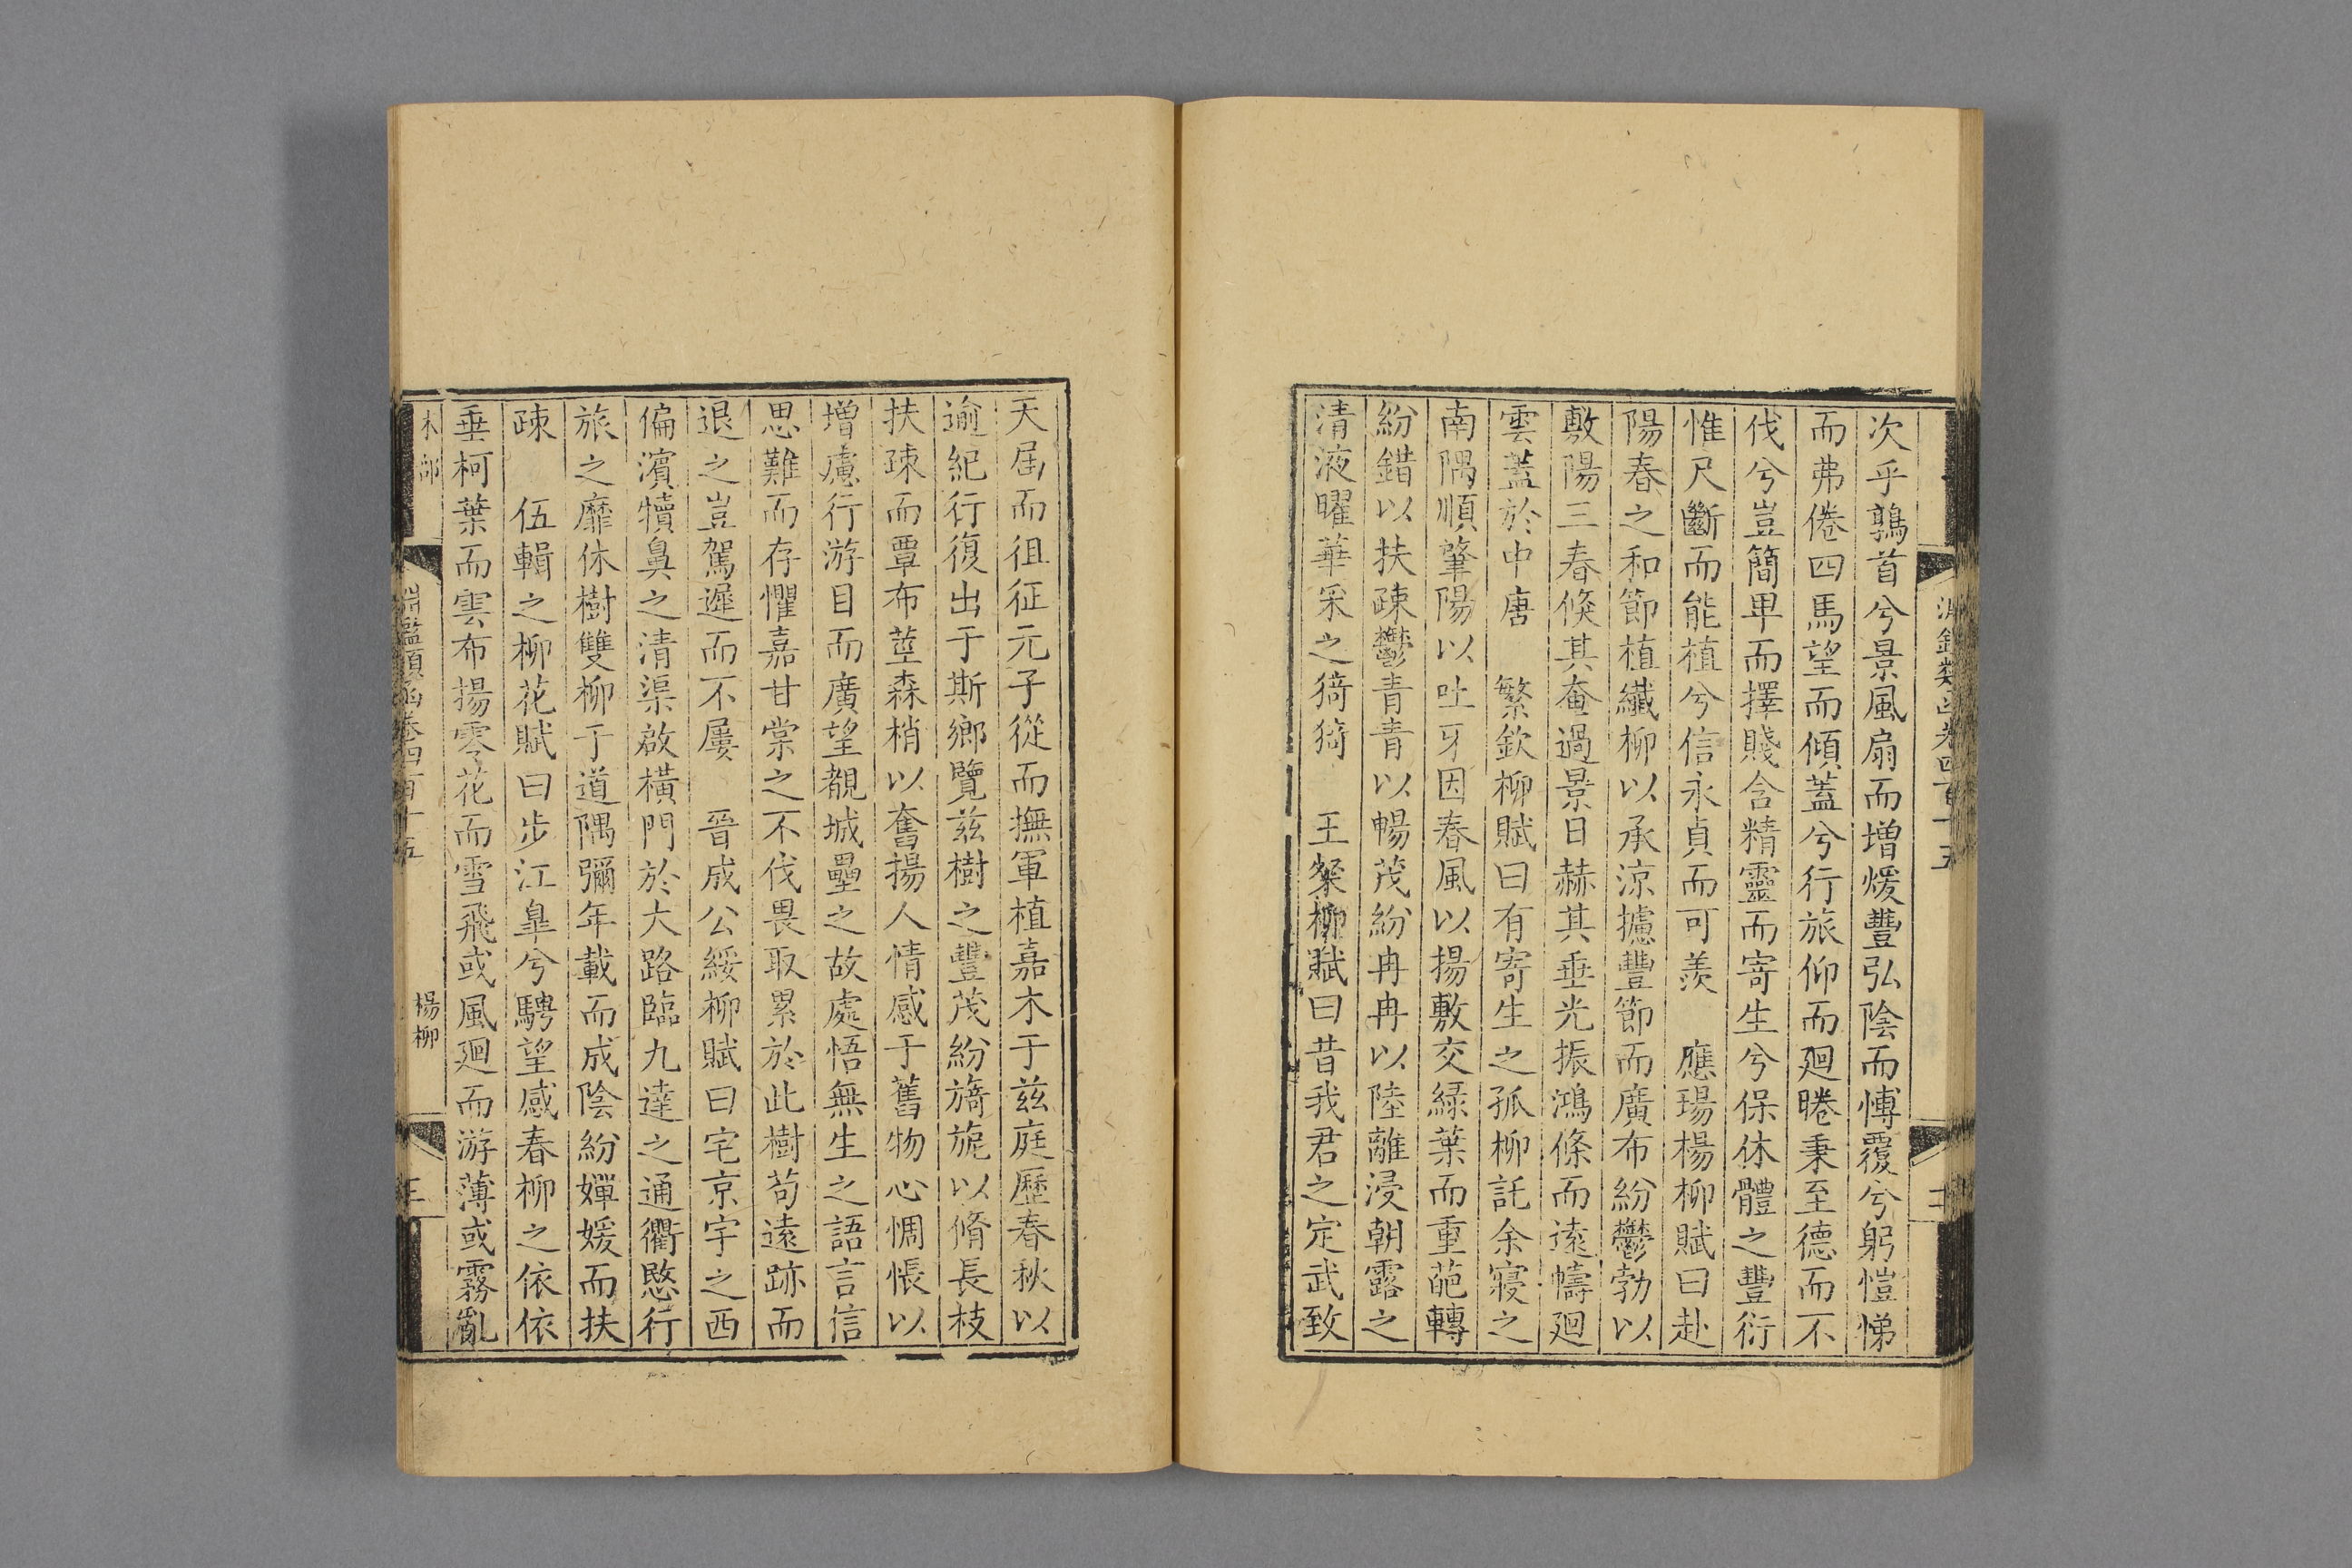 淵鑑類函卷四百十五
二
次乎鶉首兮景風扇而增煖豐弘陰而慱覆兮躬愷悌
而弗倦四馬望而傾蓋兮行旅仰而廻睠秉至德而不
伐兮豈簡畢而擇賤含精靈而寄生兮保休體之豐衍
惟尺斷而能植兮信永貞而可羨　應瑒楊柳賦曰赴
陽春之和節植纖柳以承涼攄豐節而廣布紛鬱勃以
敷陽三春倐其奄過景日赫其垂光振鴻條而遠幬廻
雲蓋於中唐　繁欽柳賦曰有寄生之孤柳託余寢之
南隅順肇陽以吐牙因春風以揚敷交綠葉而重葩轉
紛錯以扶疎鬱青青以暢茂紛冉冉以陸離浸朝露之
清液曜華采之猗猗　王粲柳賦曰昔我君之定武致
天屆而徂征元子從而撫軍植嘉木于茲庭歷春秋以
逾紀行復出于斯鄉覽茲樹之豐茂紛旖旎以脩長枝
扶疎而覃布莖森梢以奮揚人情感于舊物心惆悵以
增慮行游目而廣望覩城壘之故處悟無生之語言信
思難而存懼嘉甘棠之不伐畏取累於此樹苟遠跡而
退之豈駕遲而不屢　晉成公綏柳賦曰宅京宇之西
偏濱犢鼻之清渠啟橫門於大路臨九逵之通衢愍行
旅之靡休樹雙柳于道隅彌年載而成陰紛嬋媛而扶
疎　伍輯之柳花賦曰步江皐兮騁望感春柳之依依
垂柯葉而雲布揚零花而雪飛或風廻而游薄或霧亂
木部
淵鑑類函卷四百十五
楊柳
三